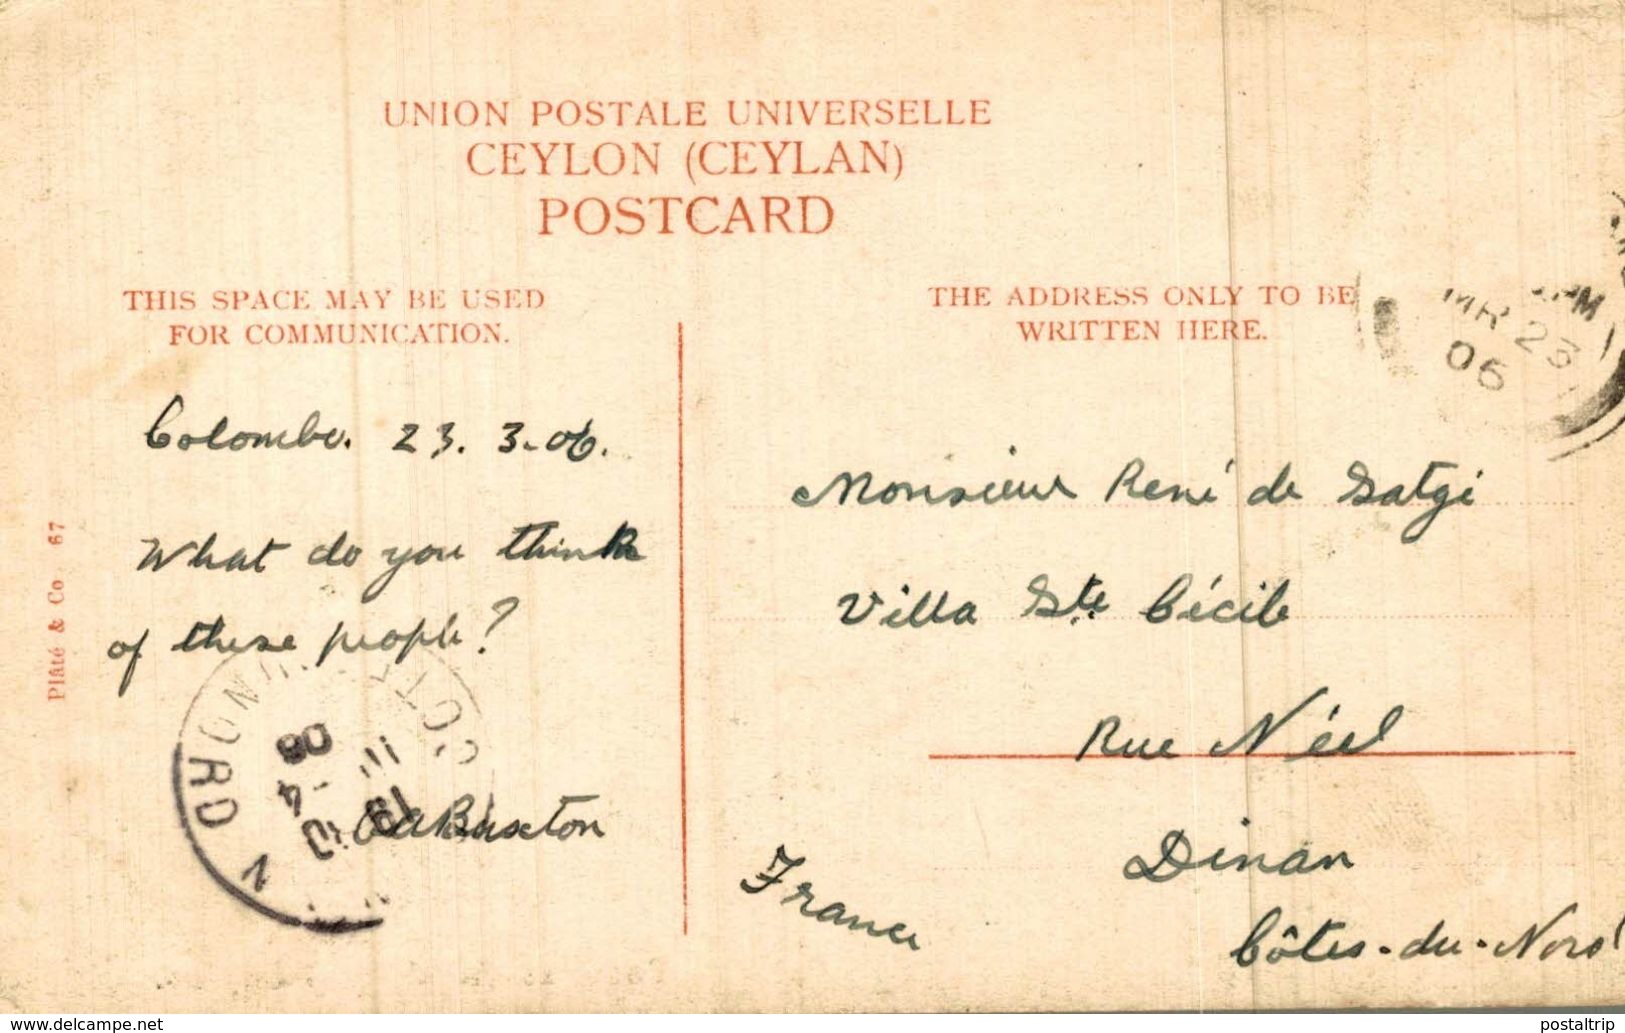 UNION POSTALE UNIVERSELLE
CEYLON (CEYLAN)
POSTCARD
THIS SPACE MAY BE USED
FOR COMMUNICATION.
THE ADDRESS ONLY TO BE
WRITTEN HERE.
PM
MR 23
06
Colombo. 23. 3-06.
What do you think
of these people?
Buxton
Plâté & Co 67
Monsieur René de Satgé
Villa Ste Cécile
Rue Néel
Dinan
Côtes-du-Nord
France
DINAN
CÔTES DU NORD
19
4
06
delcampe.net
postaltrip